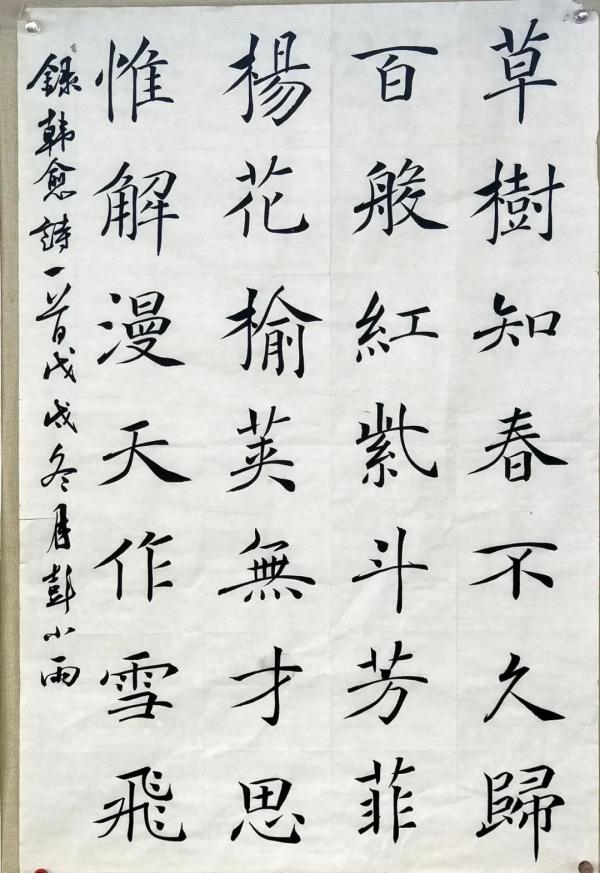 草樹知春不久歸
百般紅紫斗芳菲
楊花榆莢無才思
惟解漫天作雪飛
錄韓愈詩一首戊戌冬月彭小雨